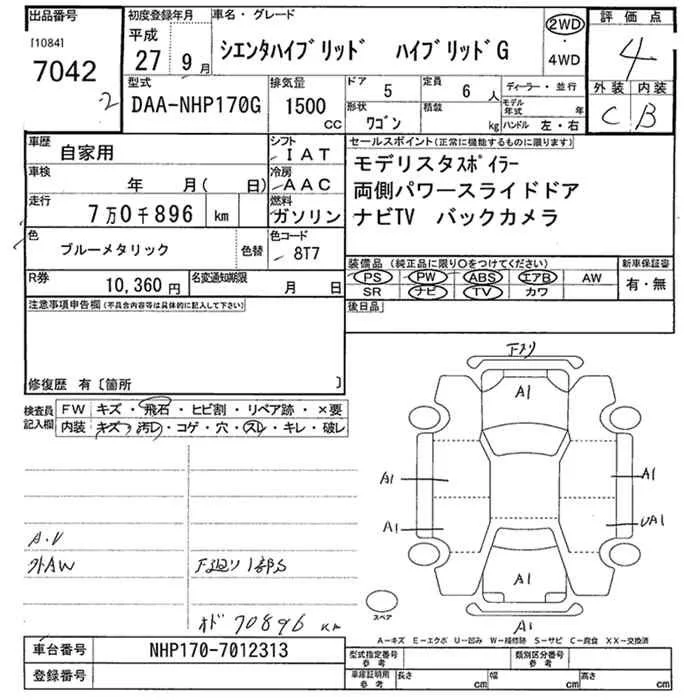 出品番号 初度登録年月 車名・グレード 評価点
[1084] 平成 2WD
7042 27年 9月 シエンタハイブリッド ハイブリッドG ・ 4
2 4WD
型式 排気量 ドア 5 定員 6人 ディーラー・並行 外装 内装
DAA-NHP170G 1500cc 形状 ワゴン 積載 kg モデル年式 年 C B
ハンドル 左・右
車歴 自家用 シフト IAT セールスポイント(正常に機能するものに限ります)
車検 年 月( 日) 冷房 AAC モデリスタスポイラー
走行 7万0千896 km 燃料 ガソリン 両側パワースライドドア
ナビTV バックカメラ
色 ブルーメタリック 色替 色コード 8T7
装備品(純正品に限り○をつけてください) 新車保証書
R券 10,360円 名変通知期限 月 日 PS PW ABS エアB AW 有・無
SR ナビ TV カワ
注意事項申告欄(不具合内容等は具体的に記入して下さい) 後日品
修復歴 有〔箇所 〕
検査員 FW キズ・飛石・ヒビ割・リペア跡・×要
記入欄 内装 キズ・汚レ・コゲ・穴・スレ・キレ・破レ
Fスリ
A1
A1 A1
A1 UA1
A1
A1
A.V
外AW 下廻り1部S
オド 70896 km
スペア
A-キズ E-エクボ U-凹み W-補修跡 S-サビ C-腐食 XX-交換済
車台番号 NHP170-7012313 型式指定番号 参考 類別区分番号 参考
登録番号 車庫証明用 参考 長さ cm 幅 cm 高さ cm